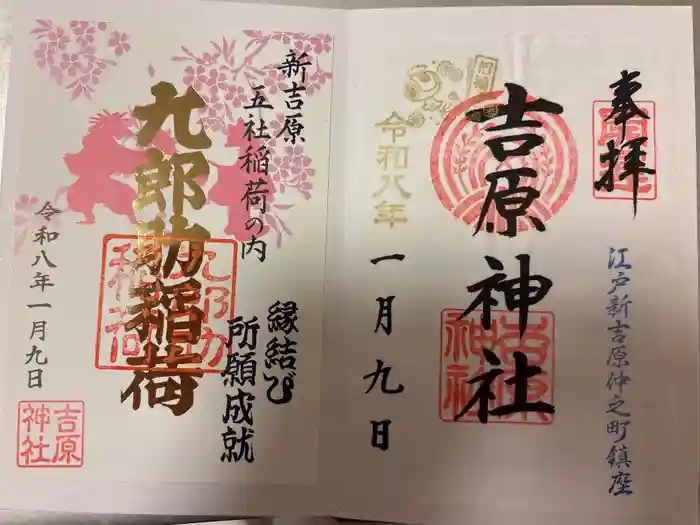 奉拝
江戸新吉原仲之町鎮座
吉原神社
吉原神社
令和八年
一月九日
新吉原
五社稲荷の内
縁結び
所願成就
九郎助稲荷
九郎助稲荷
令和八年一月九日
吉原神社